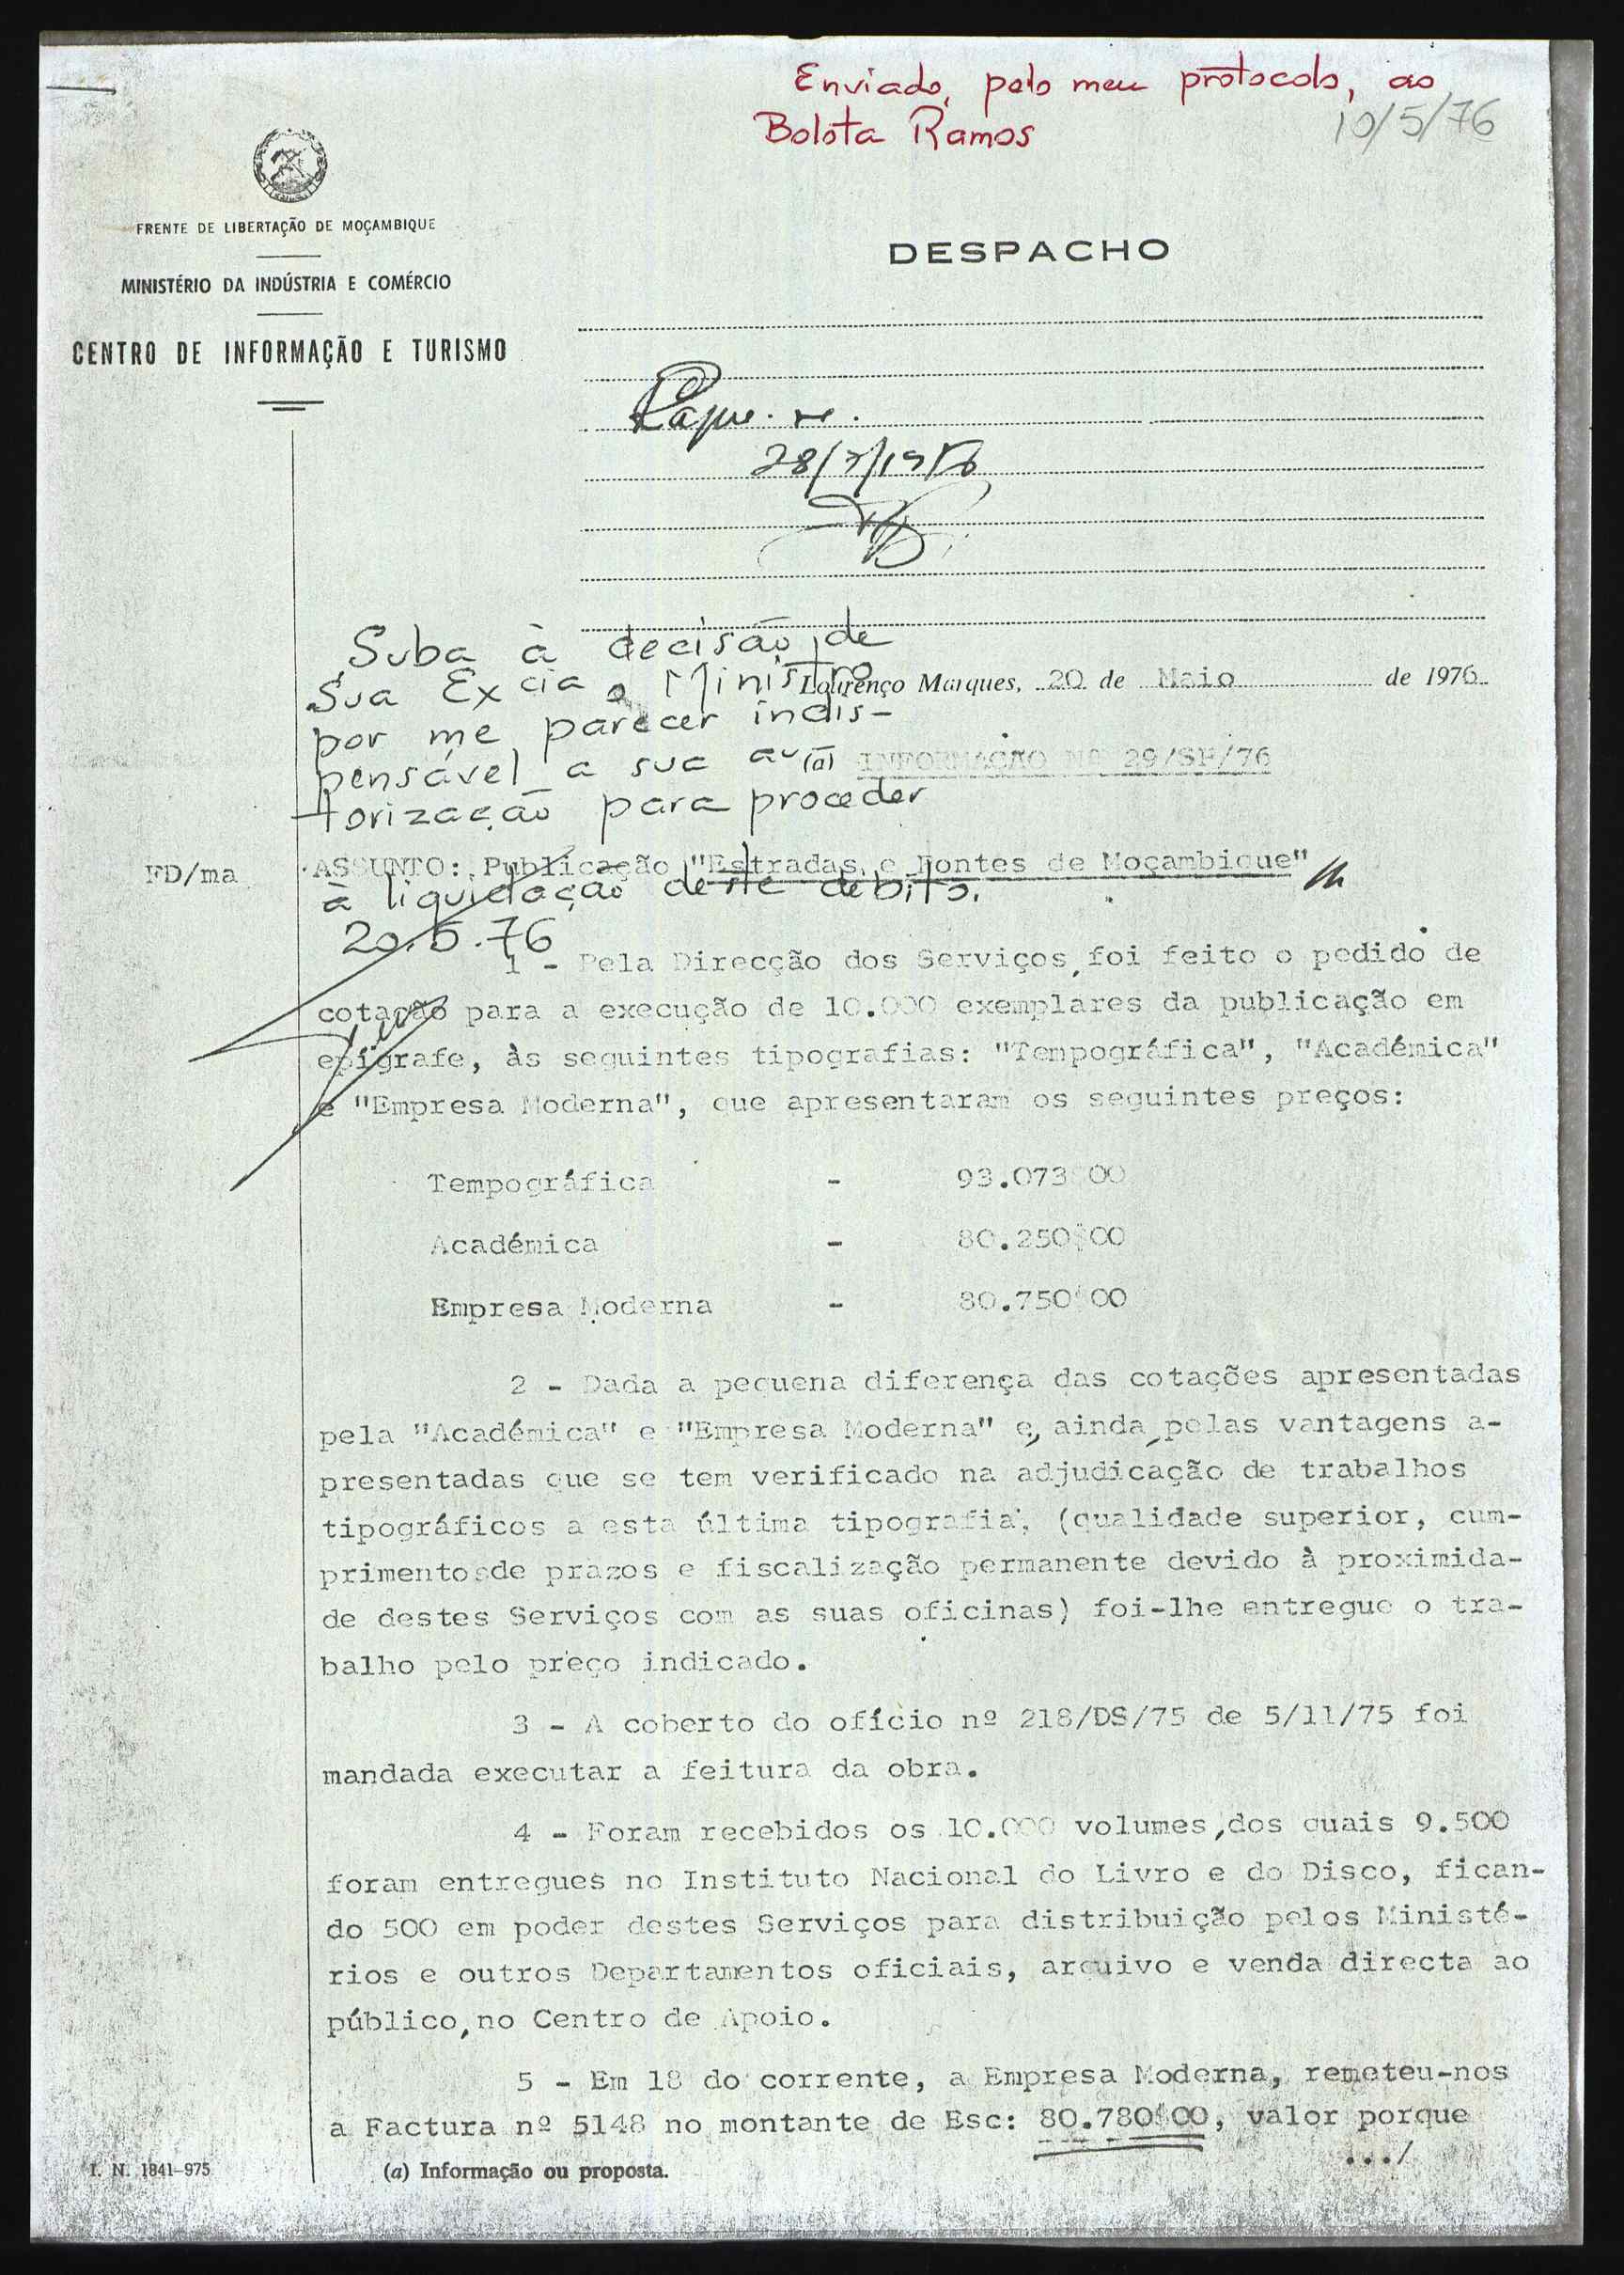 Enviado, pelo meu protocolo, ao
Bolota Ramos
10/5/76
FRENTE DE LIBERTAÇÃO DE MOÇAMBIQUE
MINISTÉRIO DA INDÚSTRIA E COMÉRCIO
CENTRO DE INFORMAÇÃO E TURISMO
DESPACHO
Suba à decisão de
Sua Excia o Ministro
por me parecer indis-
pensável a sua au-
torização para proceder
à liquidação deste débito.
20.5.76
Lourenço Marques, 20 de Maio de 1976
(a) INFORMAÇÃO Nº 29/SP/76
FD/ma
ASSUNTO: Publicação "Estradas e Pontes de Moçambique"
1 - Pela Direcção dos Serviços, foi feito o pedido de
cotação para a execução de 10.000 exemplares da publicação em
epígrafe, às seguintes tipografias: "Tempográfica", "Académica"
e "Empresa Moderna", que apresentaram os seguintes preços:
Tempográfica - 93.073$00
Académica - 80.250$00
Empresa Moderna - 80.750$00
2 - Dada a pequena diferença das cotações apresentadas
pela "Académica" e "Empresa Moderna" e, ainda, pelas vantagens a-
presentadas que se tem verificado na adjudicação de trabalhos
tipográficos a esta última tipografia, (qualidade superior, cum-
primentosde prazos e fiscalização permanente devido à proximida-
de destes Serviços com as suas oficinas) foi-lhe entregue o tra-
balho pelo preço indicado.
3 - A coberto do ofício nº 218/DS/75 de 5/11/75 foi
mandada executar a feitura da obra.
4 - Foram recebidos os 10.000 volumes, dos quais 9.500
foram entregues no Instituto Nacional do Livro e do Disco, fican-
do 500 em poder destes Serviços para distribuição pelos Ministé-
rios e outros Departamentos oficiais, arquivo e venda directa ao
público, no Centro de Apoio.
5 - Em 18 do corrente, a Empresa Moderna, remeteu-nos
a Factura nº 5148 no montante de Esc: 80.780$00, valor porque
.../
I. N. 1841-975
(a) Informação ou proposta.